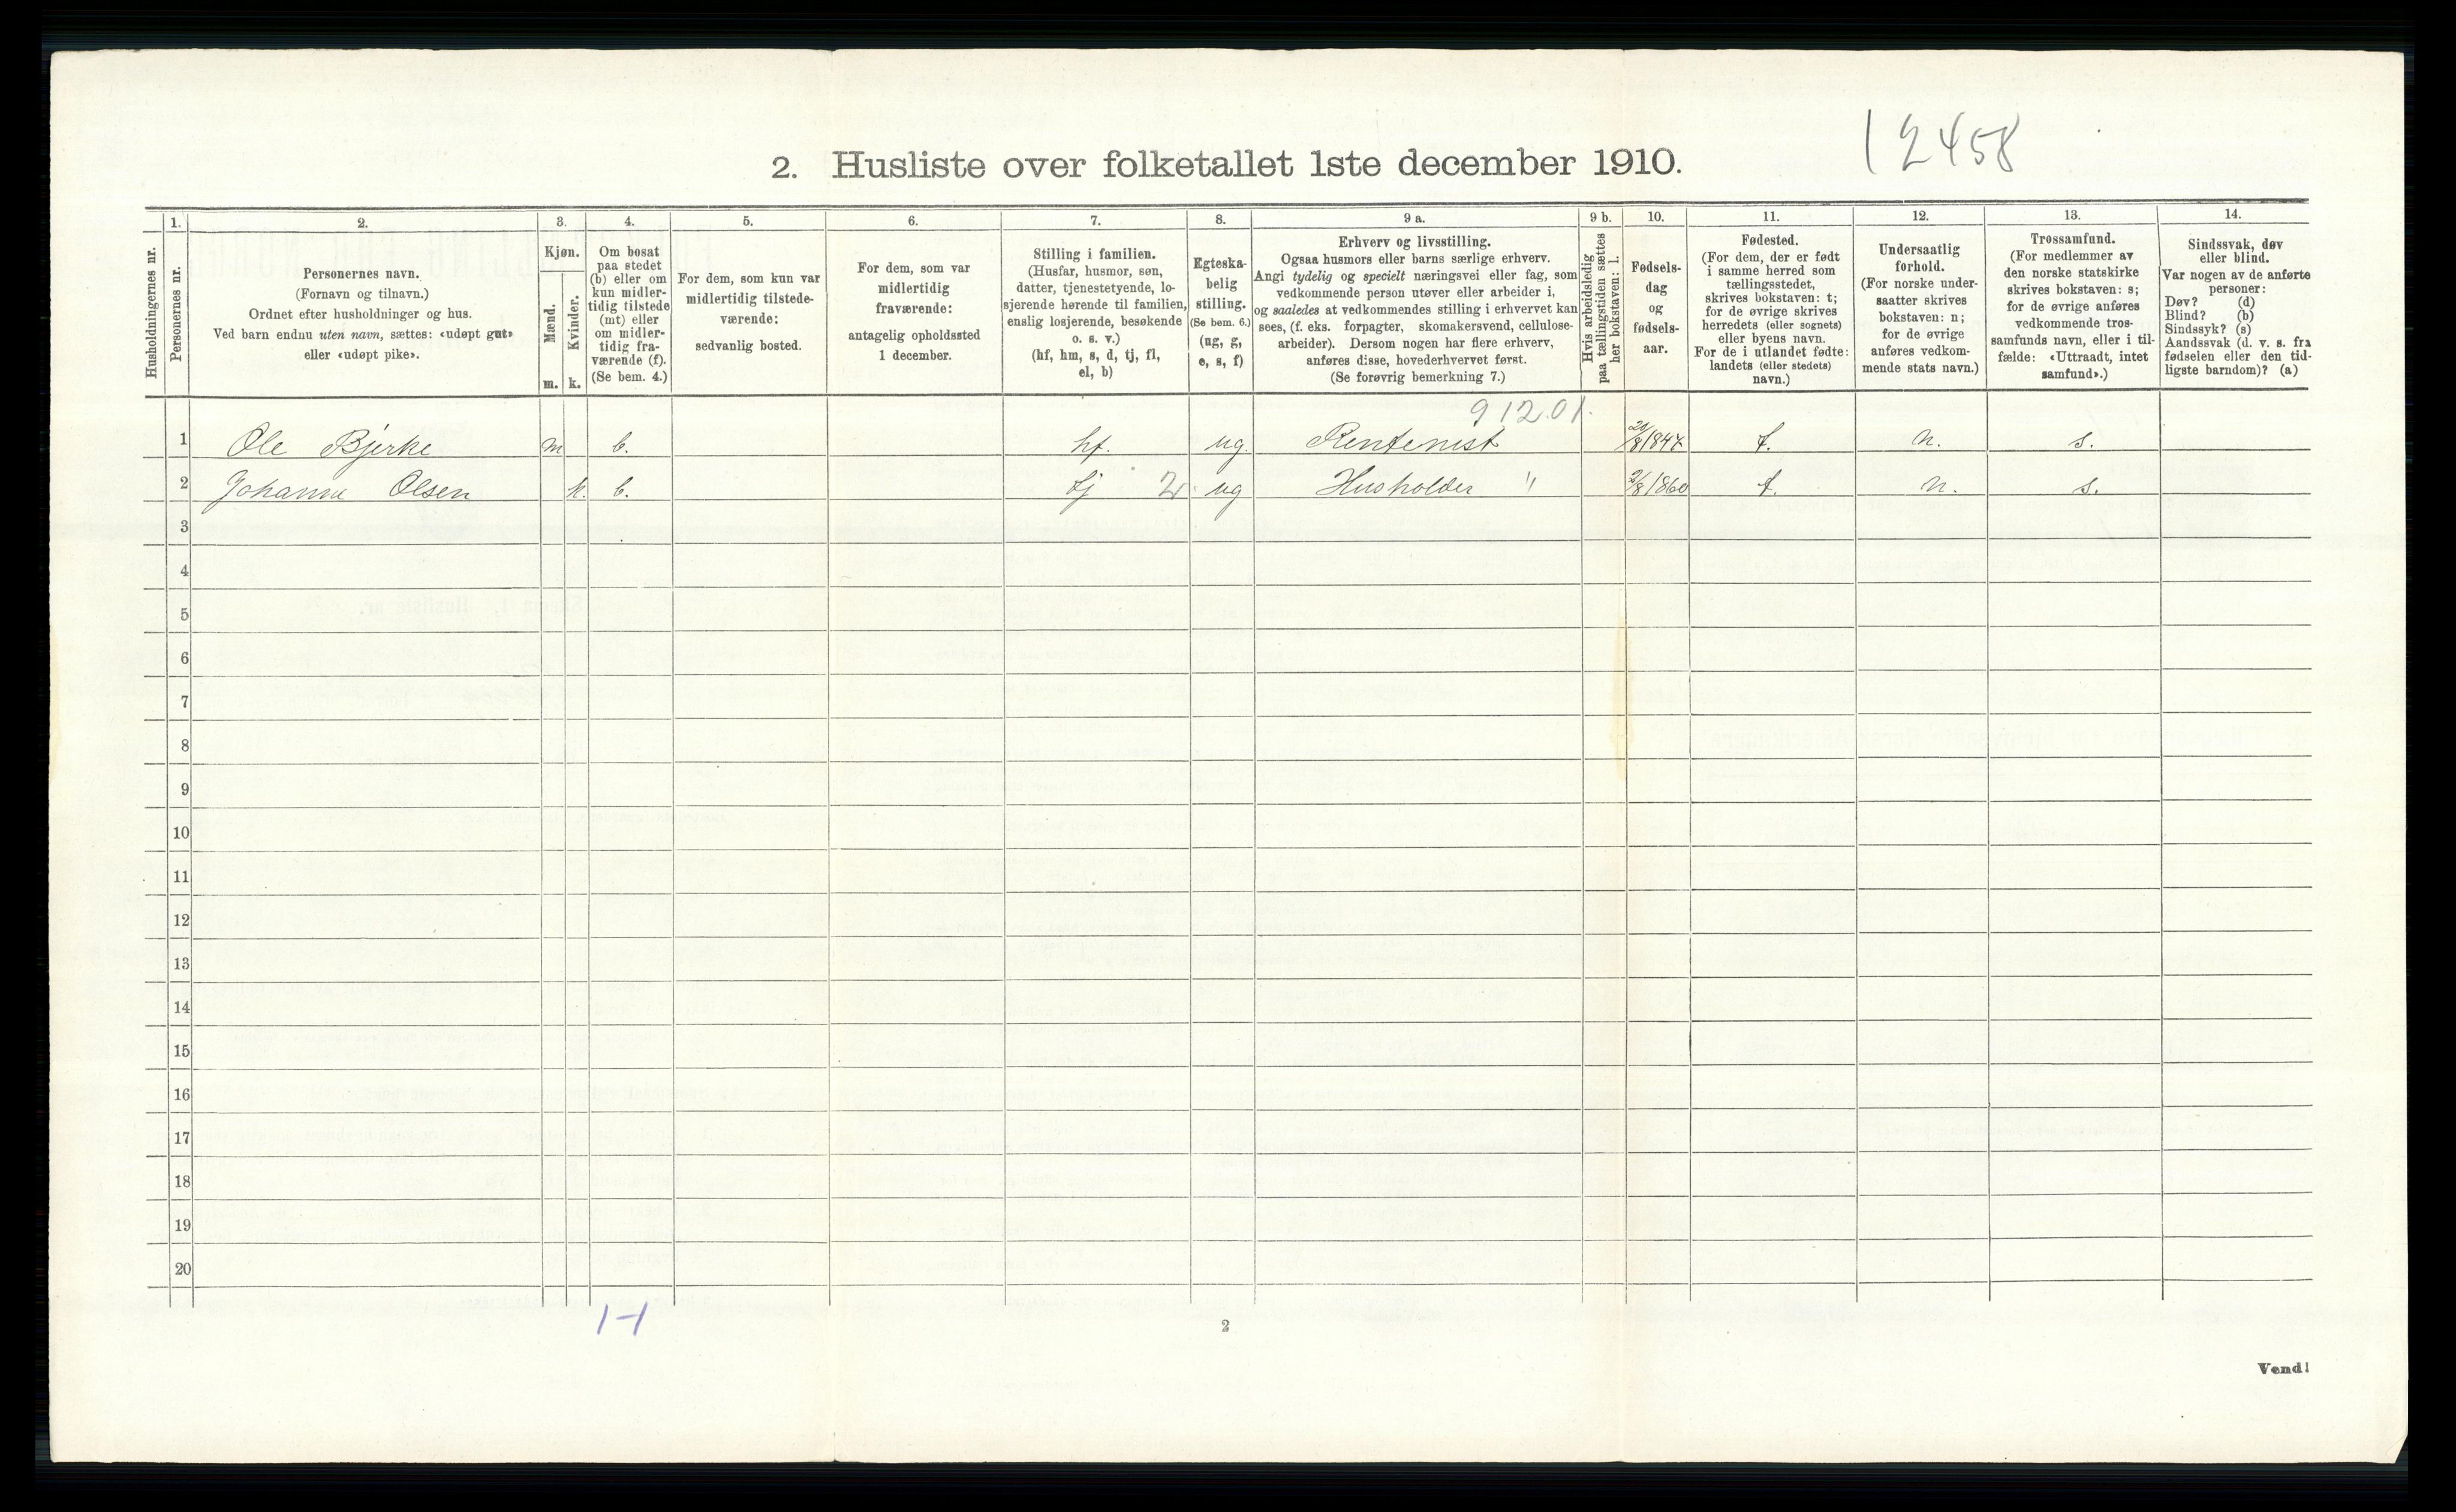 12458
2. Husliste over folketallet 1ste december 1910.
Husholdningernes nr.
1.
Personernes nr.
2.
Personernes navn.
(Fornavn og tilnavn.)
Ordnet efter husholdninger og hus.
Ved barn endnu uten navn, sættes: «udøpt gut»
eller «udøpt pike».
3.
Kjøn.
Mænd.
m.
Kvinder.
k.
4.
Om bosat
paa stedet
(b) eller om
kun midler-
tidig tilstede
(mt) eller
om midler-
tidig fra-
værende (f).
(Se bem. 4.)
5.
For dem, som kun var
midlertidig tilstede-
værende:
sedvanlig bosted.
6.
For dem, som var
midlertidig
fraværende:
antagelig opholdssted
1 december.
7.
Stilling i familien.
(Husfar, husmor, søn,
datter, tjenestetyende, lo-
sjerende hørende til familien,
enslig losjerende, besøkende
o. s. v.)
(hf, hm, s, d, tj, fl,
el, b)
8.
Egteska-
belig
stilling.
(Se bem. 6.)
(ug, g,
e, s, f)
9 a.
Erhverv og livsstilling.
Ogsaa husmors eller barns særlige erhverv.
Angi tydelig og specielt næringsvei eller fag, som
vedkommende person utøver eller arbeider i,
og saaledes at vedkommendes stilling i erhvervet kan
sees, (f. eks. forpagter, skomakersvend, cellulose-
arbeider). Dersom nogen har flere erhverv,
anføres disse, hovederhvervet først.
(Se forøvrig bemerkning 7.)
9 b.
Hvis arbeidsledig
paa tællingstiden sættes
her bokstaven: l.
10.
Fødsels-
dag
og
fødsels-
aar.
11.
Fødested.
(For dem, der er født
i samme herred som
tællingsstedet,
skrives bokstaven: t;
for de øvrige skrives
herredets (eller sognets)
eller byens navn.
For de i utlandet fødte:
landets (eller stedets)
navn.)
12.
Undersaatlig
forhold.
(For norske under-
saatter skrives
bokstaven: n;
for de øvrige
anføres vedkom-
mende stats navn.)
13.
Trossamfund.
(For medlemmer av
den norske statskirke
skrives bokstaven: s;
for de øvrige anføres
vedkommende tros-
samfunds navn, eller i til-
fælde: «Uttraadt, intet
samfund».)
14.
Sindssvak, døv
eller blind.
Var nogen av de anførte
personer:
Døv? (d)
Blind? (b)
Sindssyk? (s)
Aandssvak (d. v. s. fra
fødselen eller den tid-
ligste barndom)? (a)
912.01.
1 Ole Bjerke m b. hf. ug. Rentenist t. n. s.
2 Johanne Olsen k. b. tj 2 ug Husholder " 2/8 1860 t. n. s.
3
4
5
6
7
8
9
10
11
12
13
14
15
16
17
18
19
20
1-1
2
Vend!